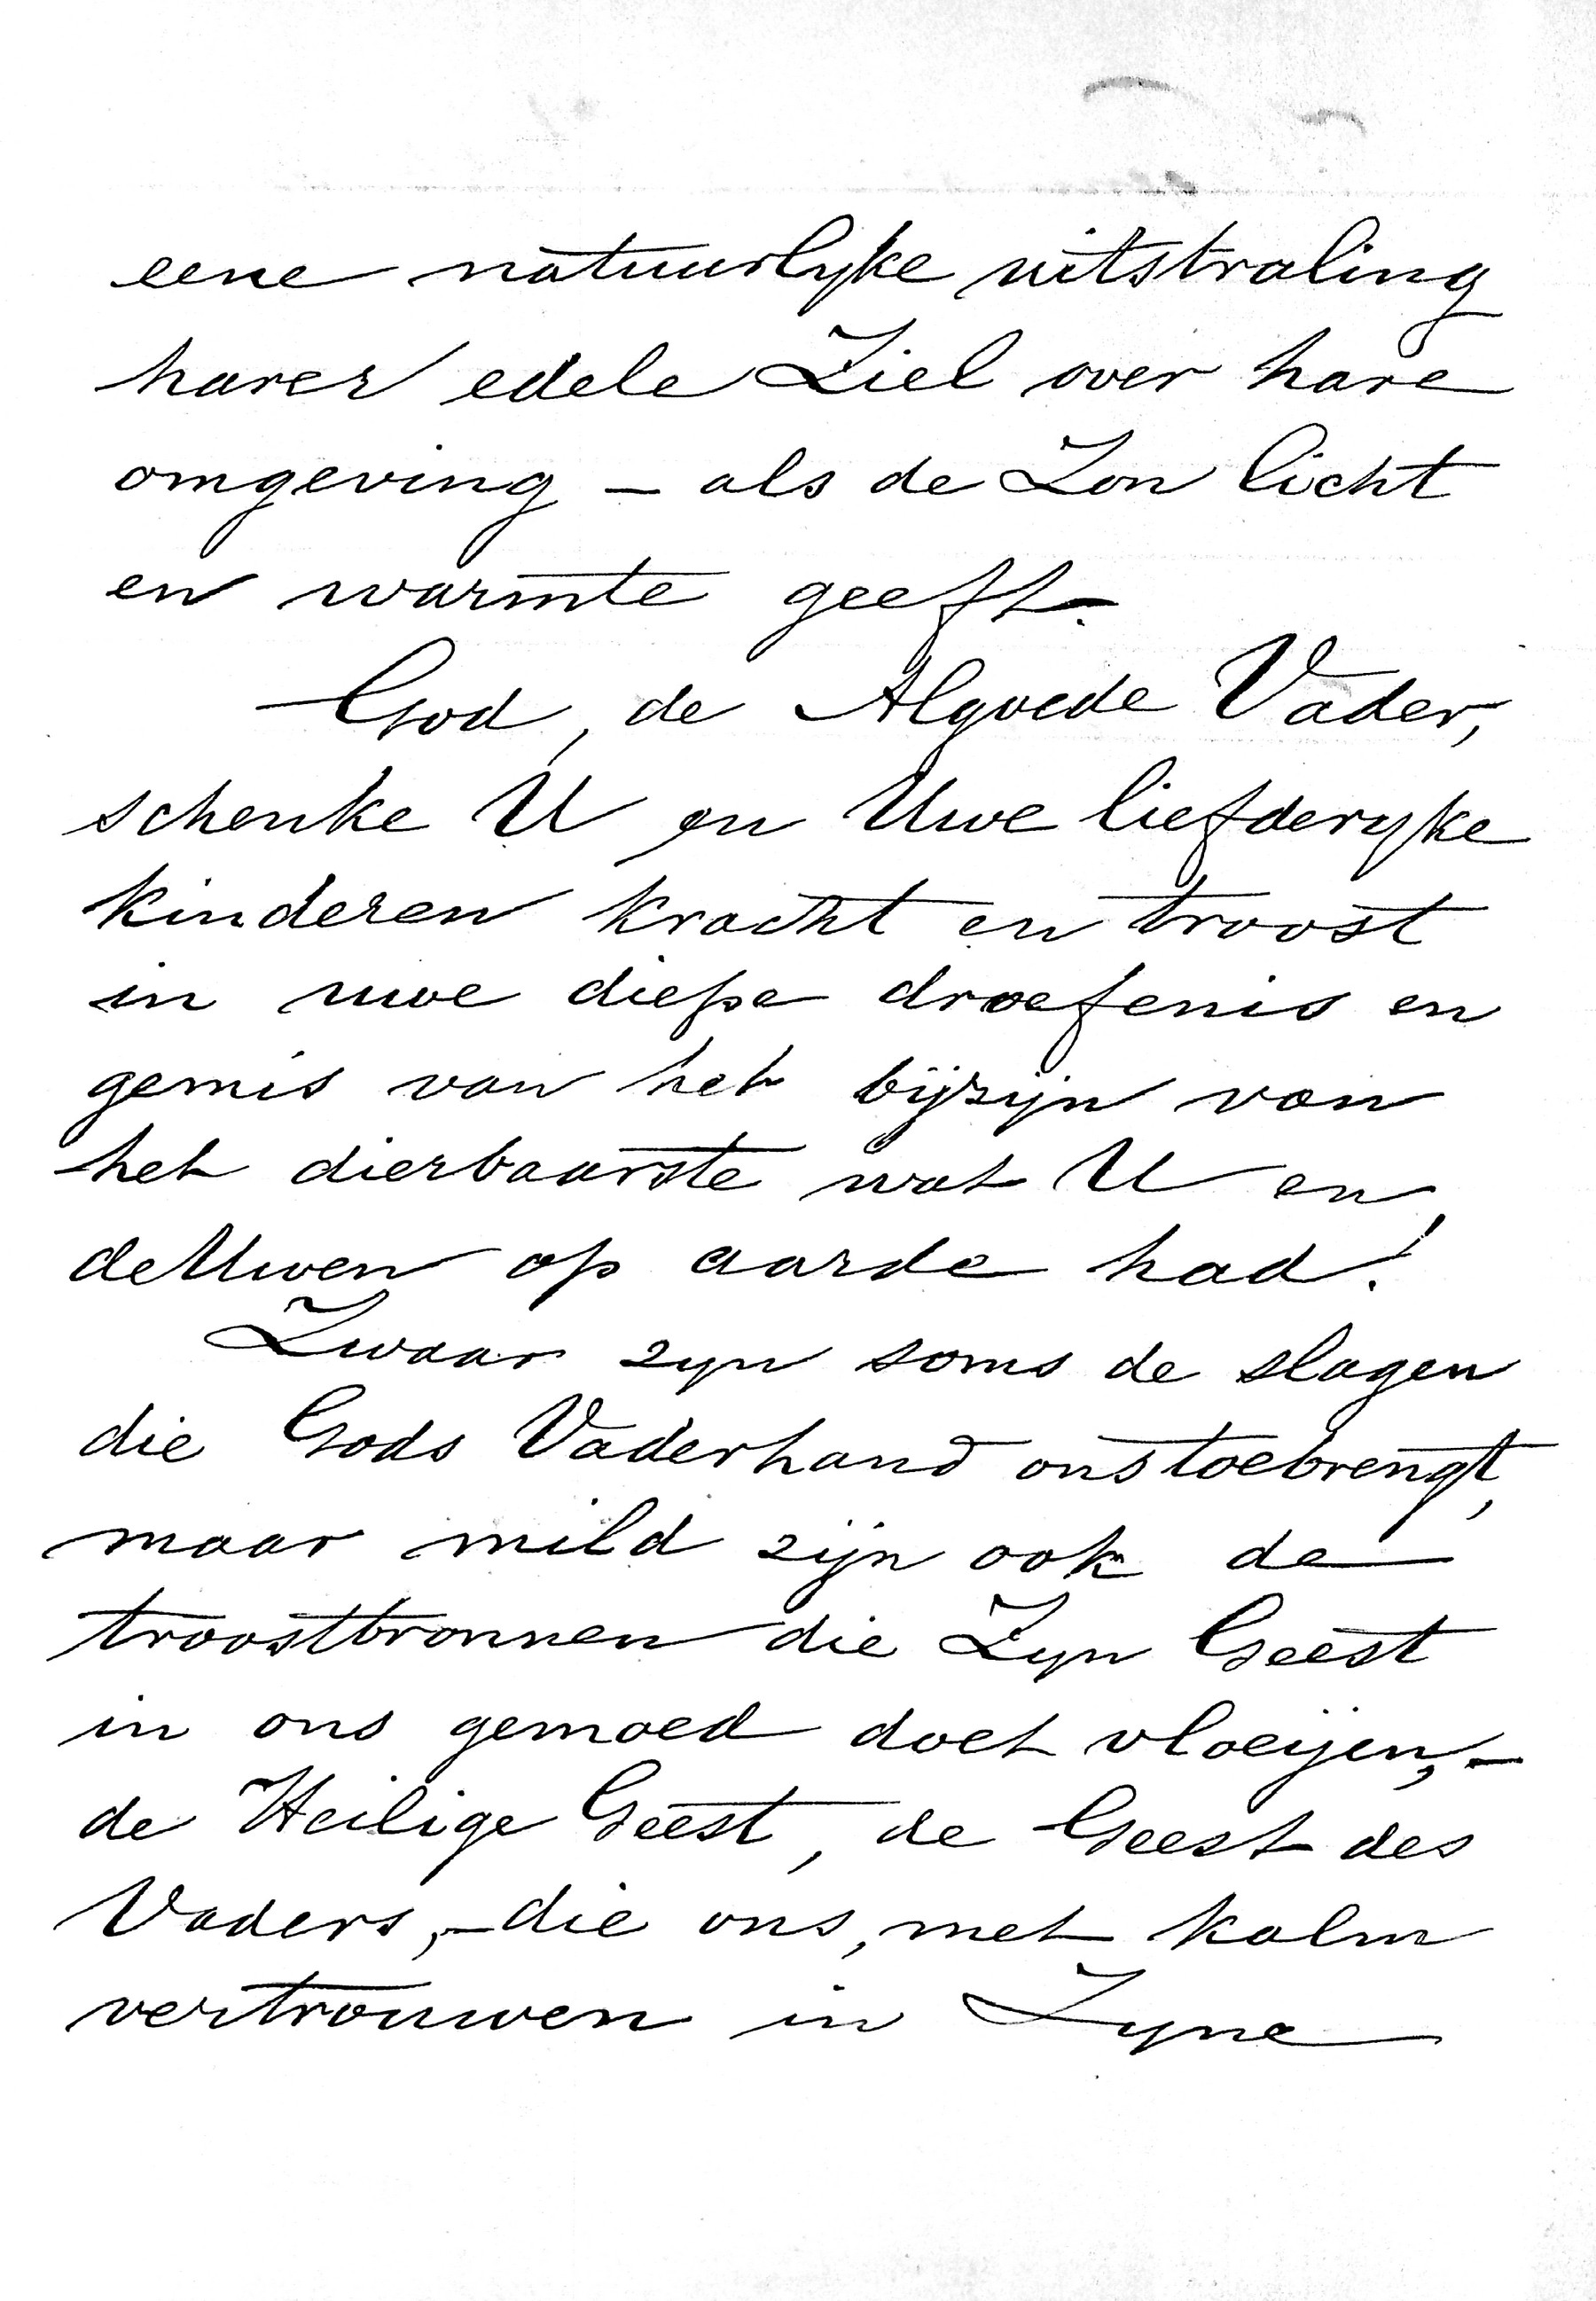 eene natuurlyke uitstraling
harer edele Ziel over hare
omgeving – als de Zon licht
en warmte geeft.
God, de Algoede Vader,
schenke U en Uwe liefderyke
kinderen kracht en troost
in uwe diepe droefenis en
gemis van het bijzijn van
het dierbaarste wat U en
de Uwen op aarde had!
Zwaar zyn soms de slagen
die Gods Vaderhand ons toebrengt,
maar mild zijn ook de
troostbronnen die Zyn Geest
in ons gemoed doet vloeijen, –
de Heilige Geest, de Geest des
Vaders, – die ons, met kalm
vertrouwen in Zyne